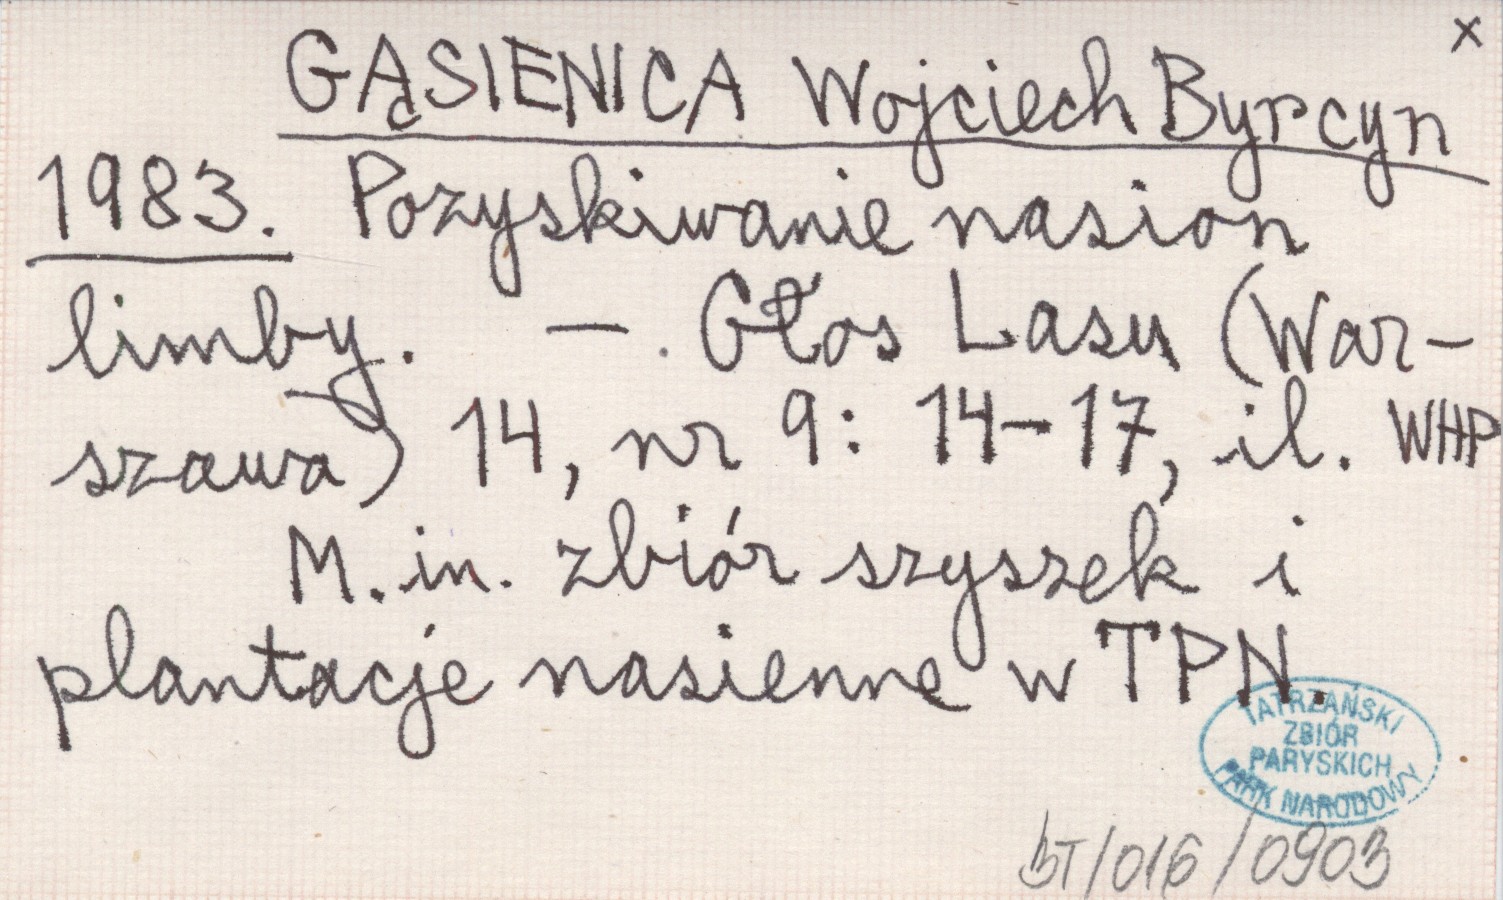 x
GĄSIENICA Wojciech Byrcyn
1983. Pozyskiwanie nasion
limby. — . Głos Lasu (War-
szawa) 14, nr 9: 14-17, il. WHP
M.in. zbiór szyszek i
plantacje nasienne w TPN.
TATRZAŃSKI
ZBIÓR
PARYSKICH
PARK NARODOWY
BT/016/0903